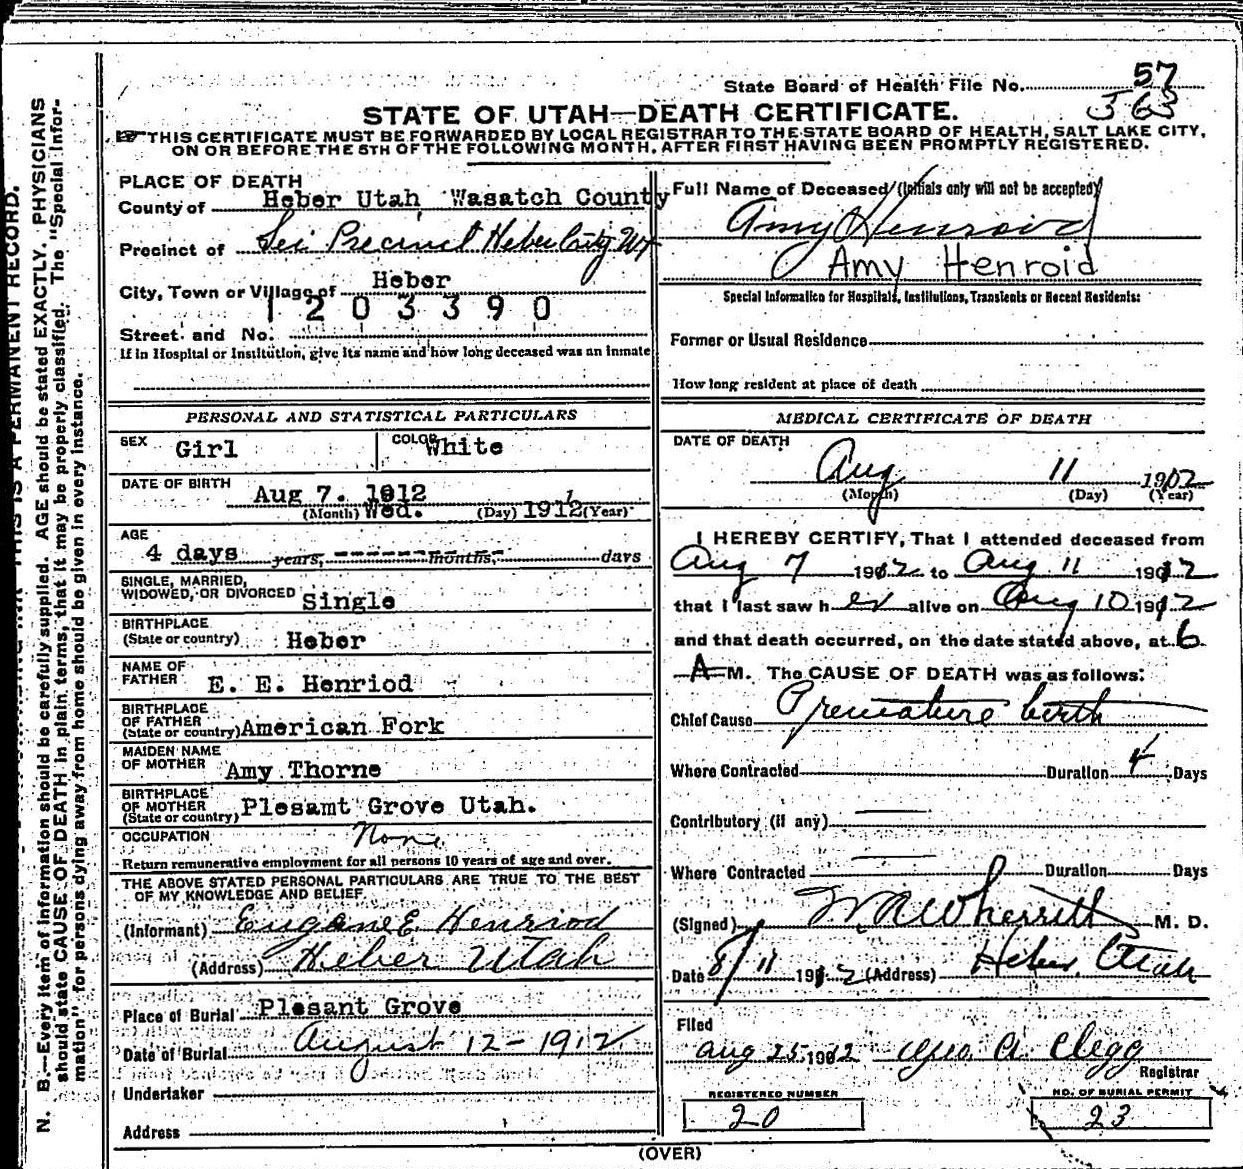 State Board of Health File No. 57
563
STATE OF UTAH—DEATH CERTIFICATE.
☞ THIS CERTIFICATE MUST BE FORWARDED BY LOCAL REGISTRAR TO THE STATE BOARD OF HEALTH, SALT LAKE CITY,
ON OR BEFORE THE 5TH OF THE FOLLOWING MONTH, AFTER FIRST HAVING BEEN PROMPTLY REGISTERED.
N. B.—Every item of information should be carefully supplied. AGE should be stated EXACTLY. PHYSICIANS
should state CAUSE OF DEATH in plain terms, that it may be properly classified. The "Special Infor-
mation" for persons dying away from home should be given in every instance.
THIS IS A PERMANENT RECORD.
PLACE OF DEATH
County of Heber Utah Wasatch County
Precinct of Precinct Heber City
City, Town or Village of Heber
1203390
Street and No.
If in Hospital or Institution, give its name and how long deceased was an inmate
PERSONAL AND STATISTICAL PARTICULARS
SEX Girl COLOR White
DATE OF BIRTH Aug 7. 1912
(Month) Wed. (Day) 1912 (Year)
AGE 4 days years, months, days
SINGLE, MARRIED,
WIDOWED, OR DIVORCED Single
BIRTHPLACE
(State or country) Heber
NAME OF
FATHER E. E. Henriod
BIRTHPLACE
OF FATHER
(State or country) American Fork
MAIDEN NAME
OF MOTHER Amy Thorne
BIRTHPLACE
OF MOTHER
(State or country) Plesamt Grove Utah.
OCCUPATION None
Return remunerative employment for all persons 10 years of age and over.
THE ABOVE STATED PERSONAL PARTICULARS ARE TRUE TO THE BEST
OF MY KNOWLEDGE AND BELIEF
(Informant) Eugene E Henriod
(Address) Heber Utah
Place of Burial Plesant Grove
Date of Burial August 12-1912
Undertaker
Address
Full Name of Deceased (Initials only will not be accepted)
Amy Henroid
Amy Henroid
Special Information for Hospitals, Institutions, Transients or Recent Residents:
Former or Usual Residence
How long resident at place of death
MEDICAL CERTIFICATE OF DEATH
DATE OF DEATH
Aug 11 1912
(Month) (Day) (Year)
I HEREBY CERTIFY, That I attended deceased from
Aug 7 1912 to Aug 11 1912
that I last saw h er alive on Aug 10 1912
and that death occurred, on the date stated above, at 6
A M. The CAUSE OF DEATH was as follows:
Chief Cause Premature birth
Where Contracted Duration 4 Days
Contributory (if any)
Where Contracted Duration Days
(Signed) Wherritt M. D.
Date 8/11 1912 (Address) Heber Utah
Filed
Aug 25 1912 Geo. A. Clegg
Registrar
REGISTERED NUMBER
20
NO. OF BURIAL PERMIT
23
(OVER)